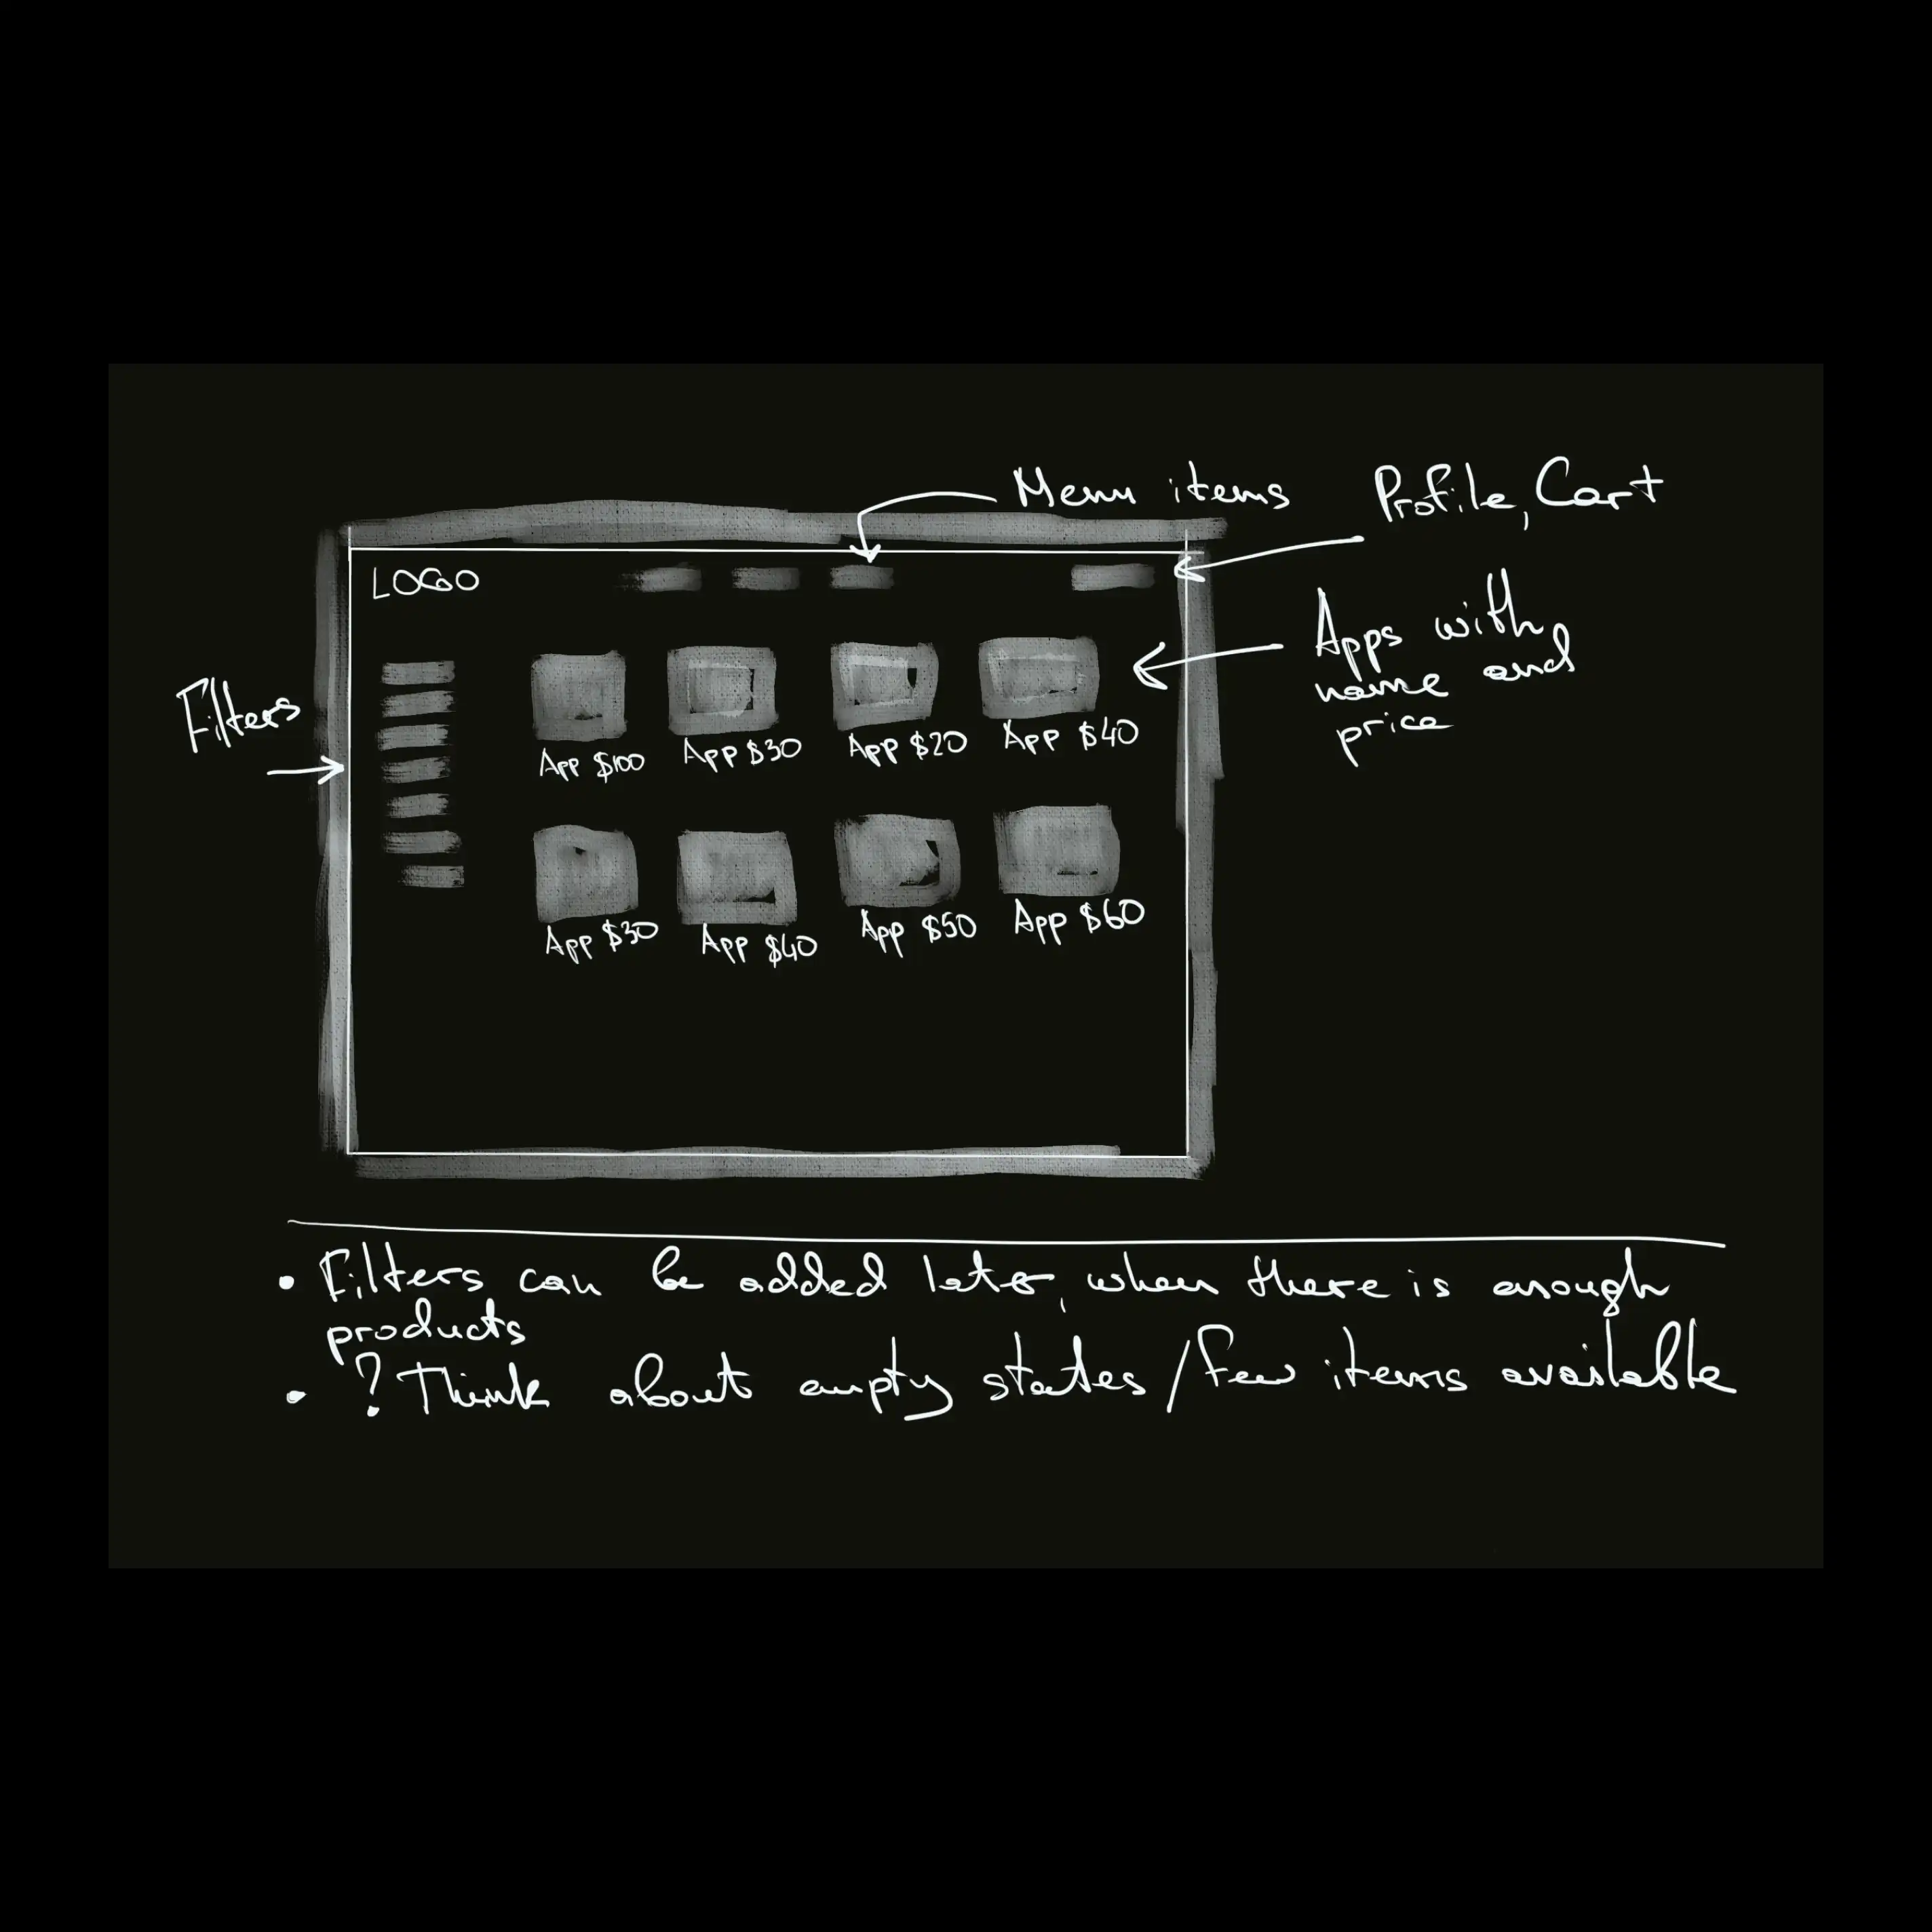 Menu items
Profile, Cart
LOGO
Apps with
name and
price
Filters
App $100
App $30
App $20
App $40
App $30
App $40
App $50
App $60
• Filters can be added later, when there is enough
products
• ? Think about empty states/few items available